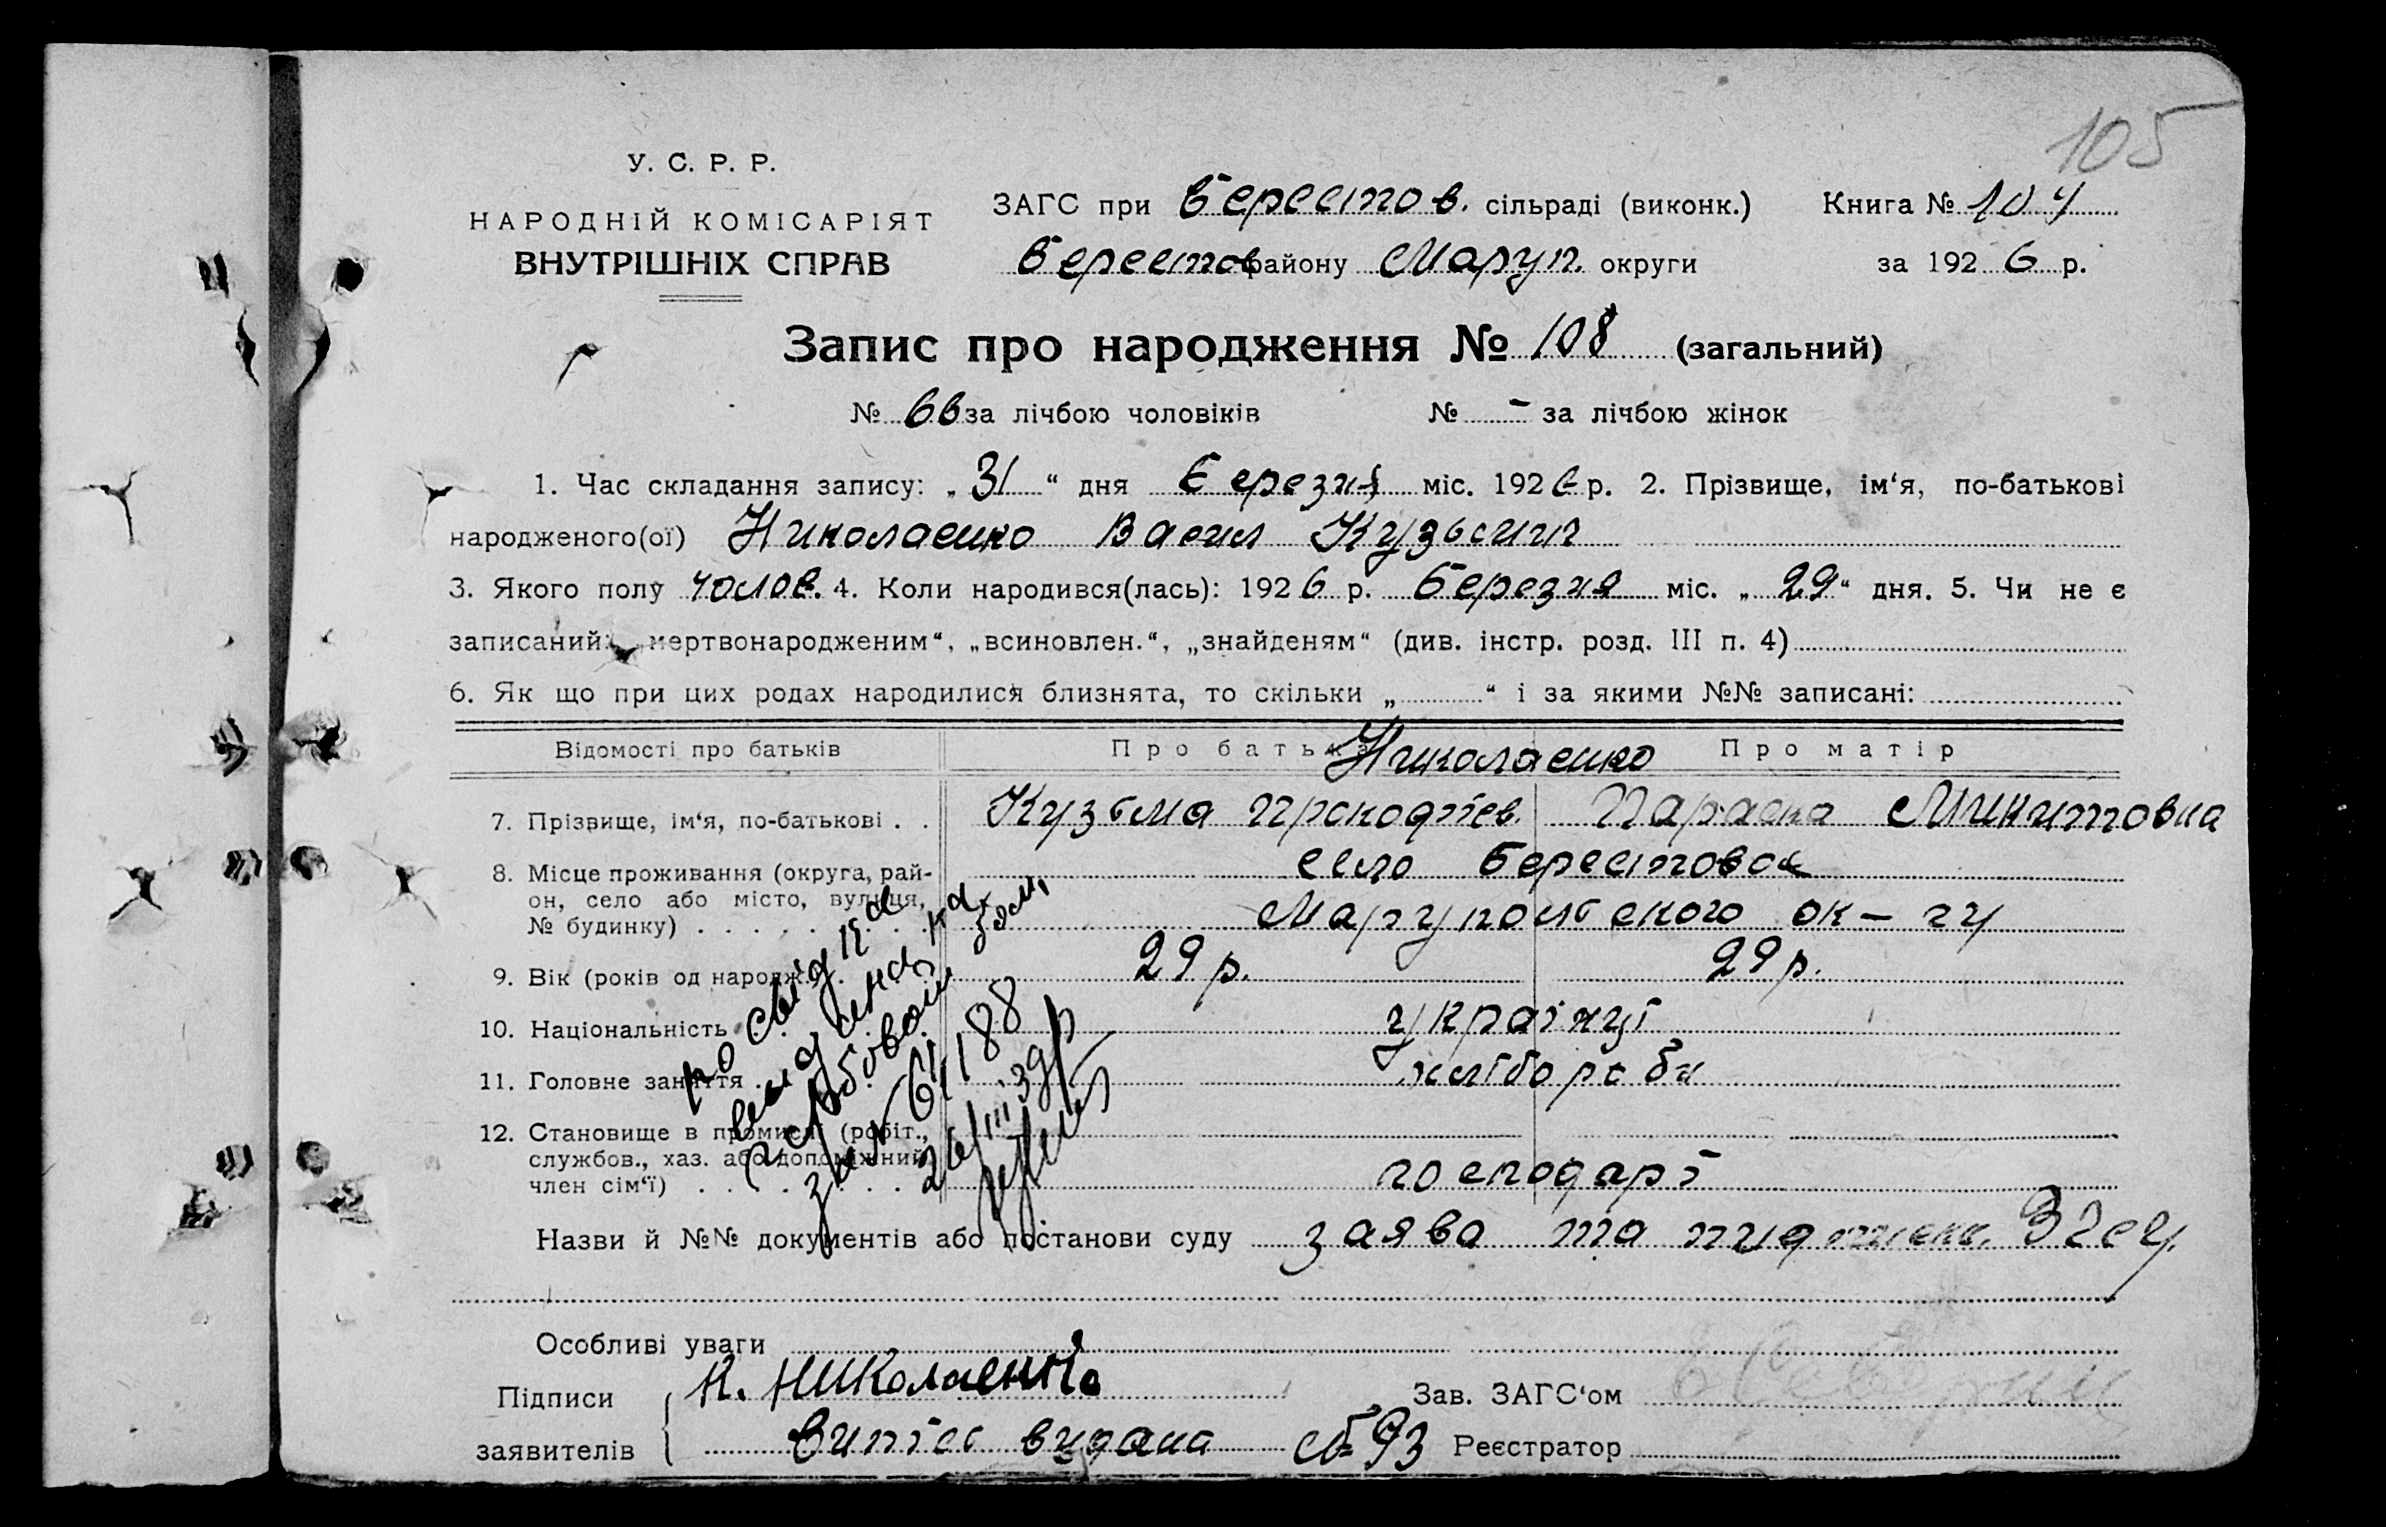 105
У. С. Р. Р.
НАРОДНІЙ КОМІСАРІЯТ
ВНУТРІШНІХ СПРАВ
ЗАГС при Берестов. сільраді (виконк.) Книга № 104
Берестов району Маруп. округи за 1926 р.
Запис про народження № 108 (загальний)
№ 66 за лічбою чоловіків № - за лічбою жінок
1. Час складання запису: „31“ дня березня міс. 1926 р. 2. Прізвище, ім‘я, по-батькові
народженого(ої) Николаенко Васил Кузьмич
3. Якого полу чолов. 4. Коли народився(лась): 1926 р. березня міс. „29“ дня. 5. Чи не є
записаний: „мертвонародженим“, „всиновлен.“, „знайденям“ (див. інстр. розд. III п. 4)
6. Як що при цих родах народилися близнята, то скільки „ “ і за якими №№ записані:
Відомості про батьків Про батька Про матір
Николаенко
7. Прізвище, ім‘я, по-батькові . . Кузьма Прокофіев. Параска Микитовна
8. Місце проживання (округа, рай- село Берестовое
он, село або місто, вулиця,
№ будинку) Марупольского ок-гу
9. Вік (років од народж.) 29 р. 29 р.
10. Національність українці
11. Головне заняття хлібороби
12. Становище в промислі (робіт.,
службов., хаз. або допоміжний
член сім‘ї) господарі
по свід
61/188
26/III 39 р
Назви й №№ документів або постанови суду заява та
Особливі уваги
Підписи К. Николаенко Зав. ЗАГС‘ом
заявителів випіс видана № 93 Реєстратор